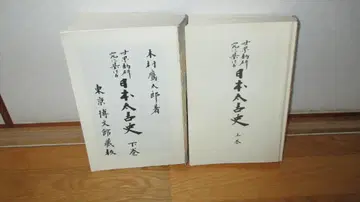 木村鷹太郎著
世界的研究
に基ける
日本太古史 下巻
東京博文館蔵版
世界的研究
に基ける
日本太古史 上巻